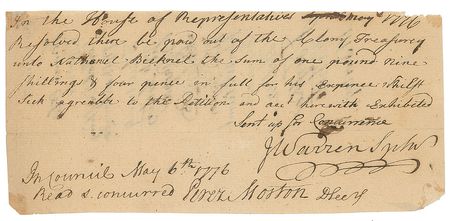 In the House of Representatives May 1776
Resolved there be paid out of the Colony Treasurey
unto Nathaniel Bicknel the sum of one pound nine
shillings & four pence in full for his Expence whilst
Sick agreable to the Petition and acct herewith Exhibited
Sent up for Concurrence
J Warren Spkr
In Council May 6th 1776
Read & concurred Perez Morton DSecy